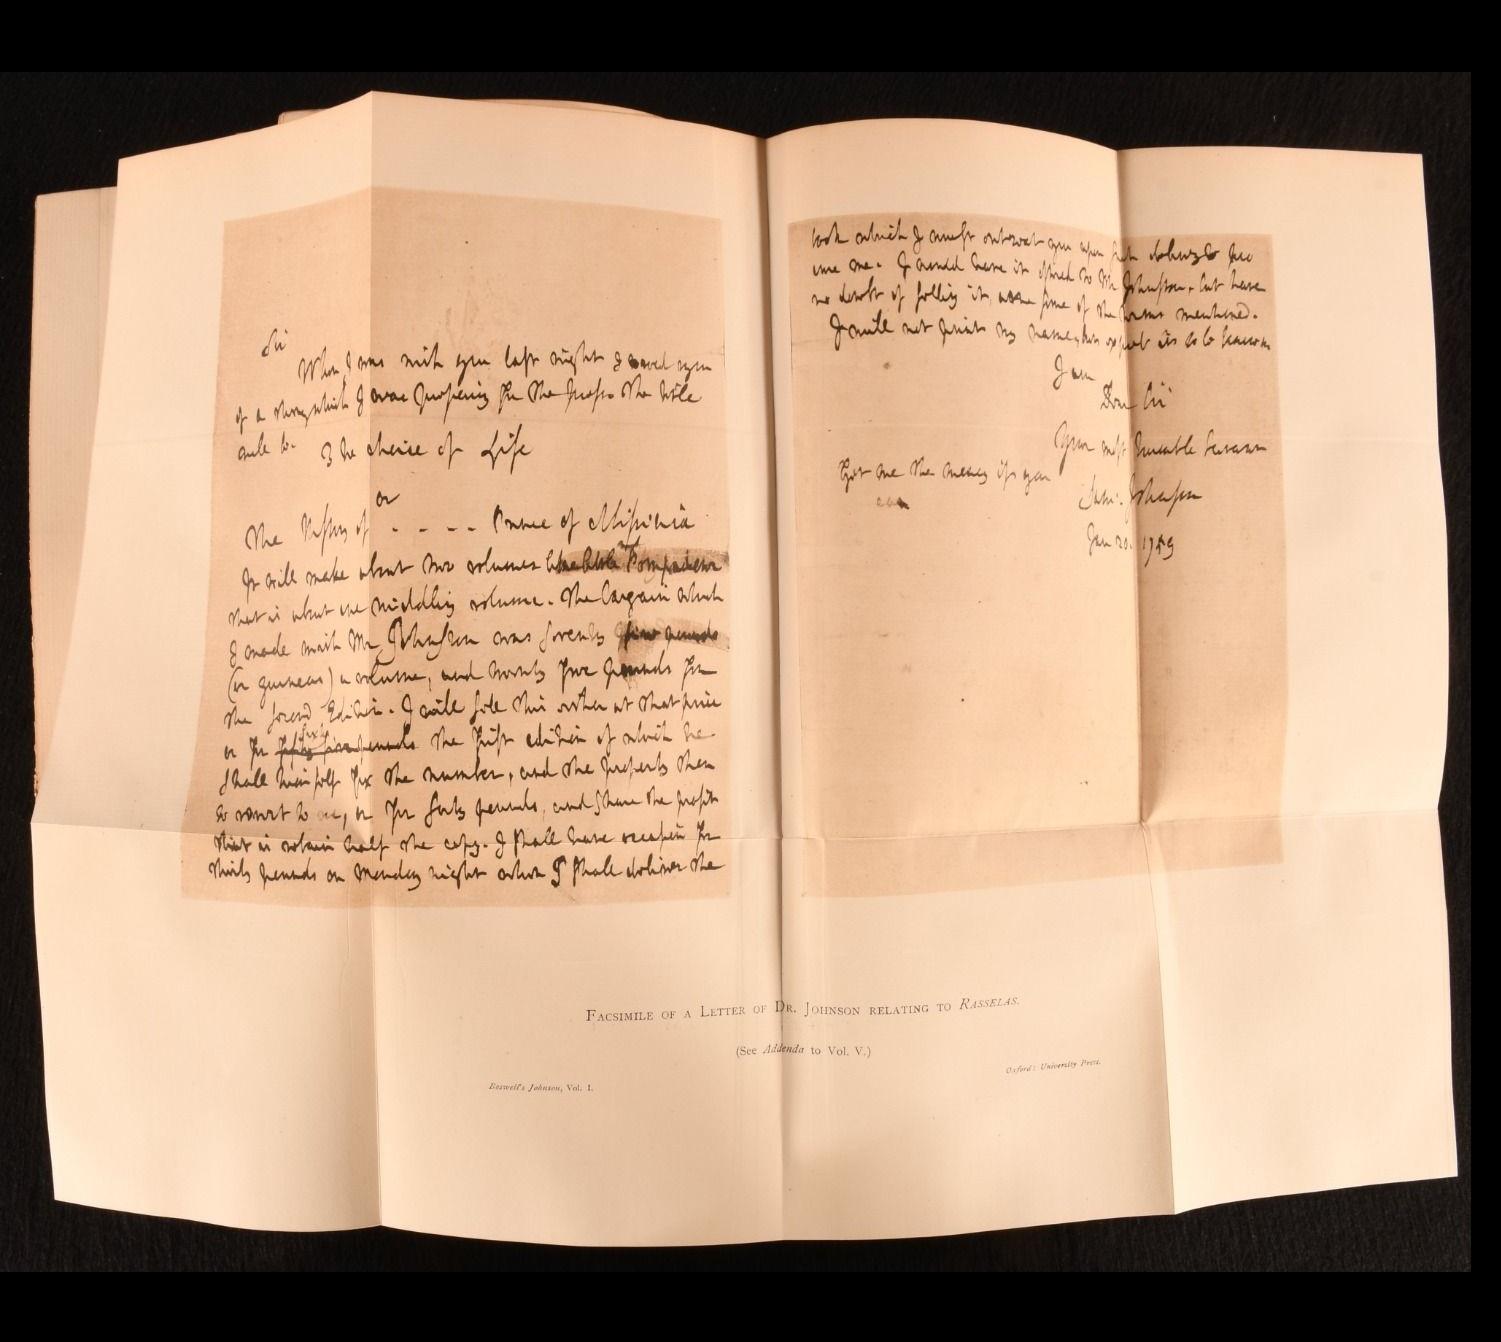 Sir
When I was with you last night I told you
of a story which I was preparing for the press. The title
will be The choice of Life
or
The History of - - - - Prince of Abissinia
It will make about two volumes like little Pompadour
that is about one middling volume. The bargain which
I made with Mr Johnson was seventy five pounds
(or guineas) a volume, and twenty five pounds for
the second Edition. I will sell this either at that price
or for sixty the first edition of which he
shall himself fix the number, and the property then
to revert to me, or for forty pounds, and share the profit
that is retain half the copy. I shall have occasion for
thirty pounds on Monday night when I shall deliver the
book which I must entreat you upon such delivery to pro
cure me. I would have it offered to Mr Johnston, but have
no doubt of selling it, on some of the terms mentioned.
I will not print my name, but expect it to be known
I am
Dear Sir
Your most humble servant
Sam: Johnson
Jan 20. 1759
Get me the money if you
can
FACSIMILE OF A LETTER OF DR. JOHNSON RELATING TO RASSELAS.
(See Addenda to Vol. V.)
Oxford: University Press.
Boswell's Johnson, Vol. I.